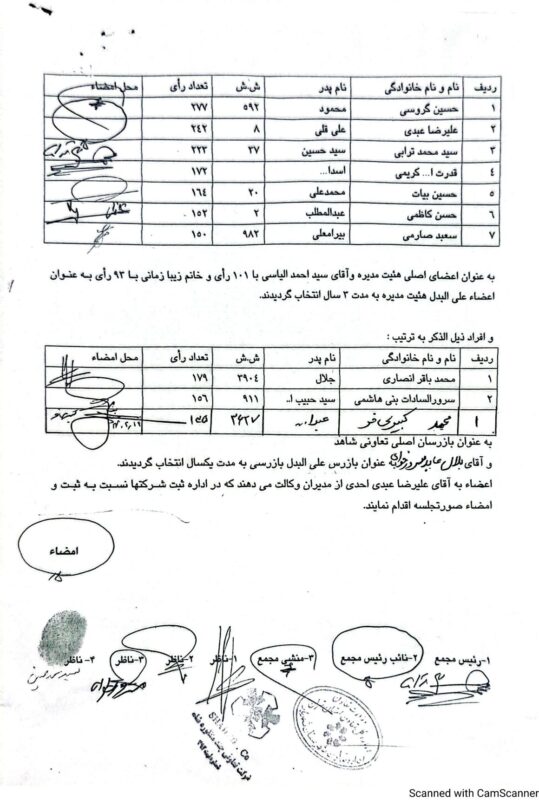 ردیف نام و نام خانوادگی نام پدر ش.ش تعداد رأی محل امضاء
۱ حسین گروسی محمود ۵۹۲ ۲۷۷
۲ علیرضا عبدی علی قلی ۸ ۲۴۲
۳ سید محمد ترابی سید حسین ۲۷ ۲۲۳
۴ قدرت ا... کریمی اسدا... ۱۷۲
۵ حسین بیات محمدعلی ۲۰ ۱۶۴
۶ حسن کاظمی عبدالمطلب ۲ ۱۵۲
۷ سعید صارمی بیرامعلی ۹۸۲ ۱۵۰
به عنوان اعضای اصلی هئیت مدیره وآقای سید احمد الیاسی با ۱۰۱ رأی و خانم زیبا زمانی بـا ۹۳ رأی بـه عنـوان
اعضاء علی البدل هئیت مدیره به مدت ۳ سال انتخاب گردیدند.
و افراد ذیل الذکر به ترتیب :
ردیف نام و نام خانوادگی نام پدر ش.ش تعداد رأی محل امضاء
۱ محمد باقر انصاری جلال ۳۹۰۴ ۱۷۹
۲ سرورالسادات بنی هاشمی سید حبیب ا.. ۹۱۱ ۱۵۶
۱ محمد ۳۶۲۷
به عنوان بازرسان اصلی تعاونی شاهد
و آقای به عنوان بازرس علی البدل بازرسی به مدت یکسال انتخاب گردیدند.
اعضاء به آقای علیرضا عبدی احدی از مدیران وکالت می دهند که در اداره ثبت شرکتها نسبت به ثبت و
امضاء صورتجلسه اقدام نمایند.
امضاء
۱-رئیس مجمع ۲-نائب رئیس مجمع ۳-منشی مجمع ۱-ناظر ۲-ناظر ۳-ناظر ۴-ناظر
Scanned with CamScanner